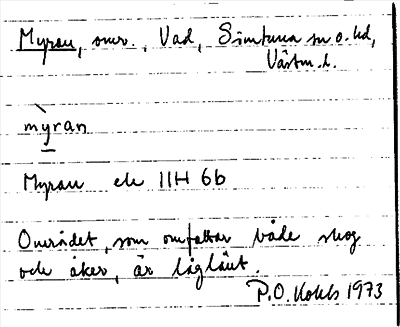 Myran, omr., Vad, Simtuna sn o. hd,
Västm. l.
mỳran
Myran ek 11H 6b
Området, som omfattar både skog
och åker, är låglänt.
P.O. 1973